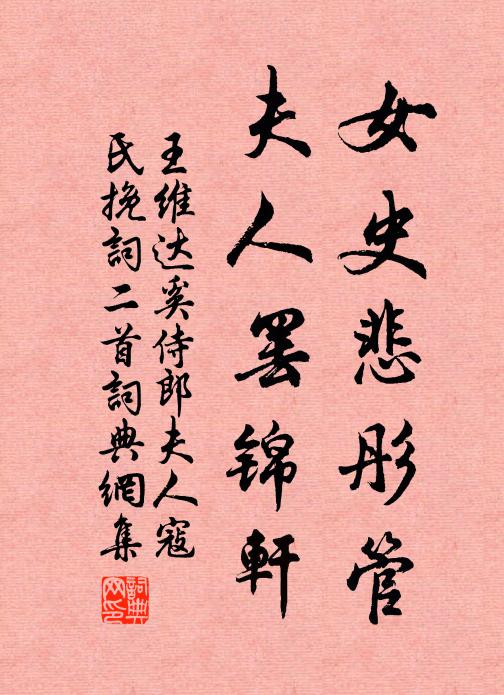 女史悲彤管
夫人罢锦軒
王维达奚侍郎夫人寇
氏挽詞二首詞典網集
詞典
网印